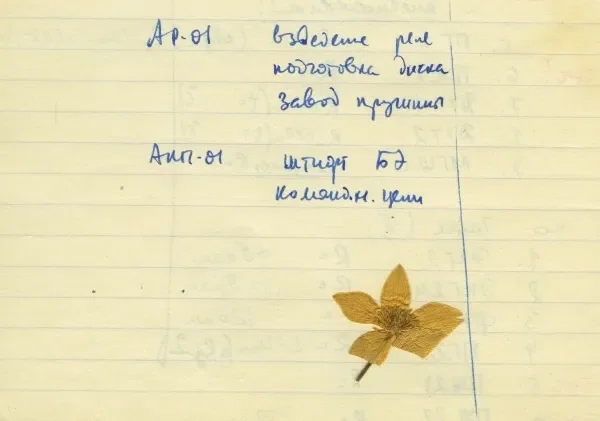 АР-01 взведение реле
подготовка диска
завод пружины
АКП-01 штифт БЭ
команд.н. цепи